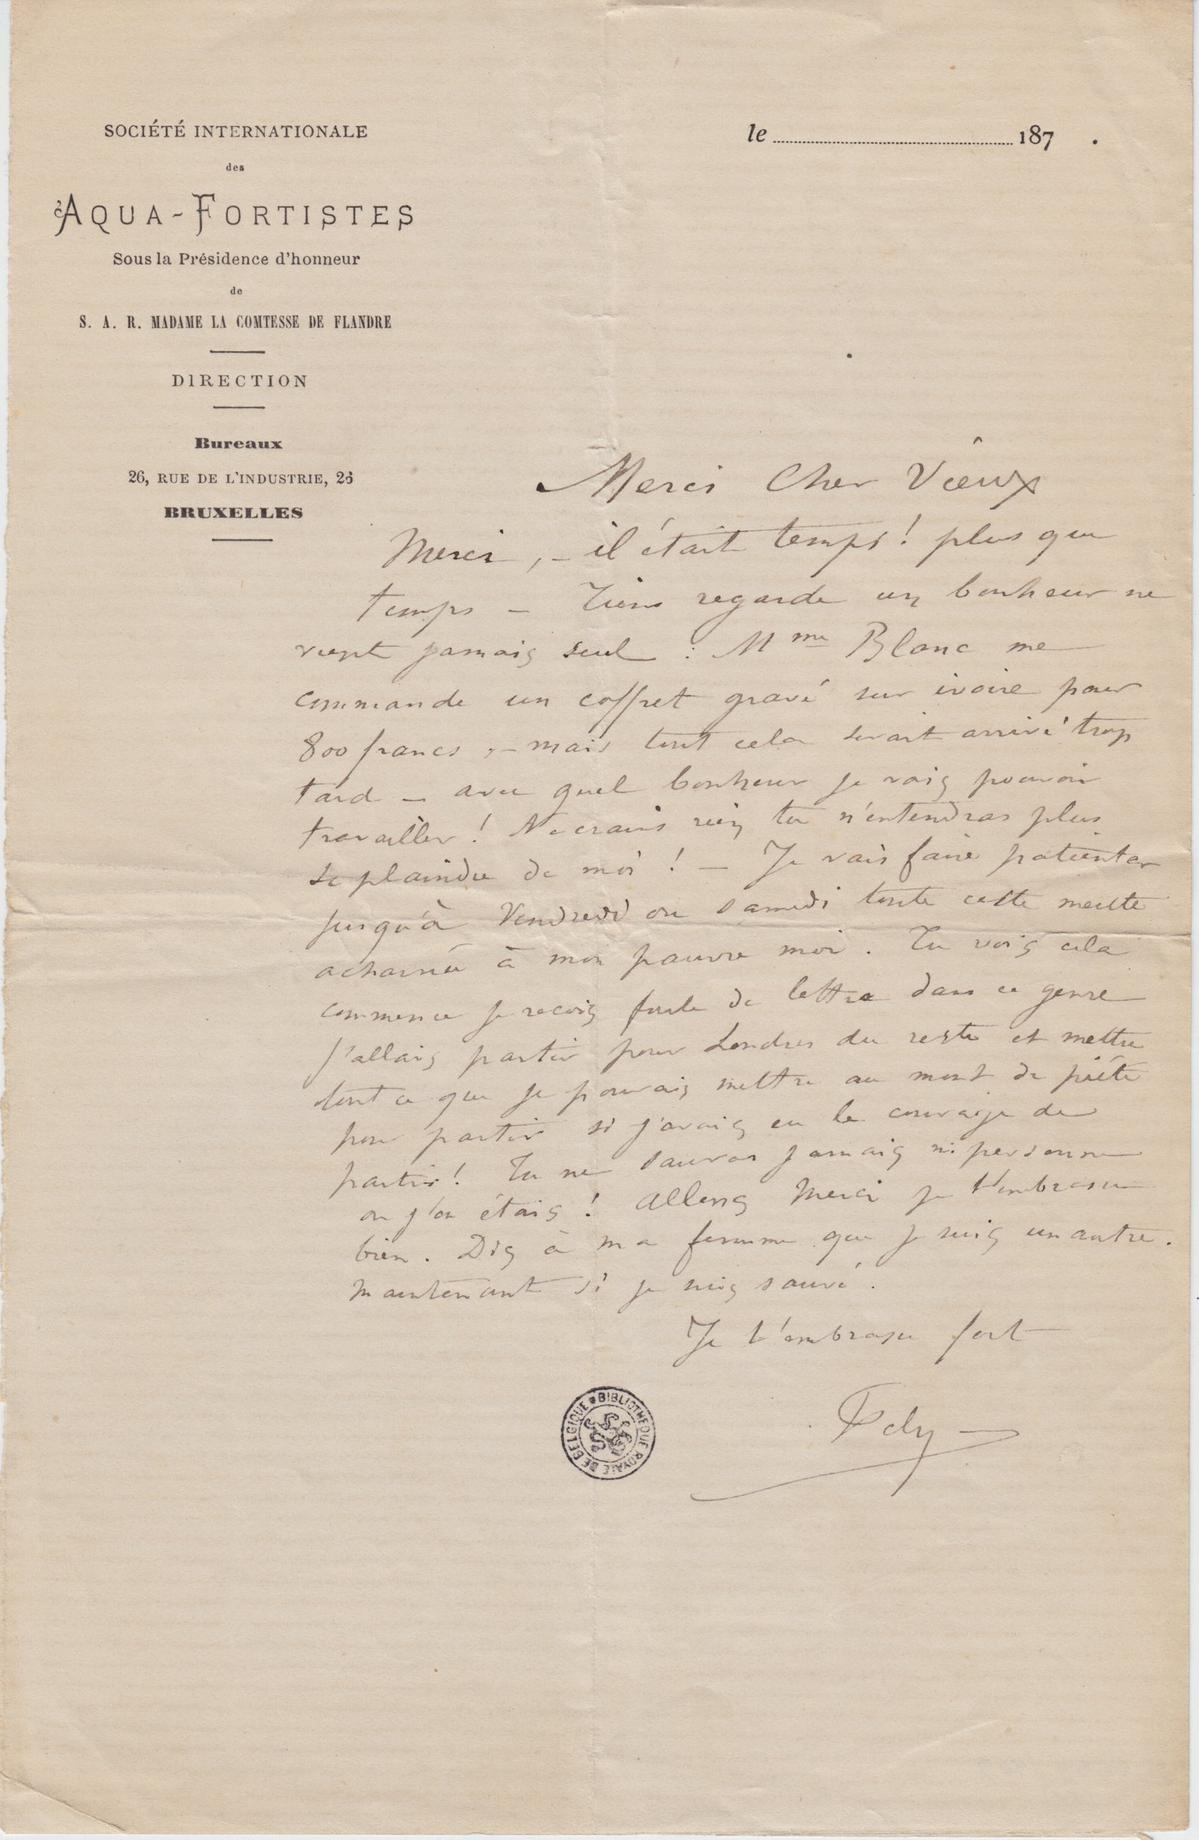 SOCIÉTÉ INTERNATIONALE
des
AQUA-FORTISTES
Sous la Présidence d'honneur
de
S. A. R. MADAME LA COMTESSE DE FLANDRE
DIRECTION
Bureaux
26, RUE DE L'INDUSTRIE, 26
BRUXELLES
le 187 .
Merci Cher Vieux
Merci, – il était temps! plus que
temps – Tiens regarde un bonheur ne
vient jamais seul : Mme Blanc me
commande un coffret gravé sur ivoire pour
800 francs, – mais tout cela serait arrivé trop
tard – avec quel bonheur je vais pouvoir
travailler! Ne crains rien tu n'entendras plus
se plaindre de moi! – Je vais faire patienter
jusqu'à Vendredi ou samedi toute cette meute
acharnée à mon pauvre moi. Tu vois cela
commence je reçois foule de lettre dans ce genre
j'allais partir pour Londres du reste et mettre
tout ce que je pouvais mettre au mont de piété
pour partir si j'avais eu le courage de
partir! Tu ne sauras jamais ni personne
où j'en étais! Allons Merci je t'embrasse
bien. Dis à ma femme que je suis un autre.
maintenant si je suis sauvé.
Je t'embrasse fort
Fély
BIBLIOTHEQUE ROYALE DE BELGIQUE